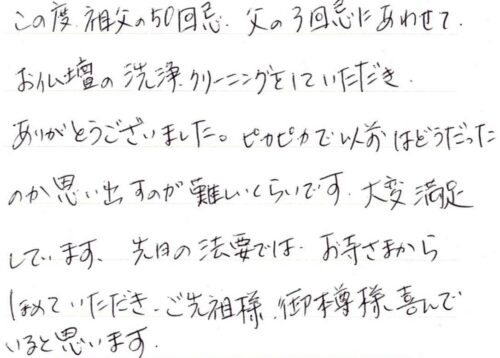 この度、祖父の50回忌、父の3回忌にあわせて、
お仏壇の洗浄、クリーニングをしていただき、
ありがとうございました。ピカピカで以前はどうだった
のか思い出すのが難しいくらいです。大変満足
しています。先日の法要では、お寺さまから
ほめていただき、ご先祖様、御本尊様、喜んで
いると思います。